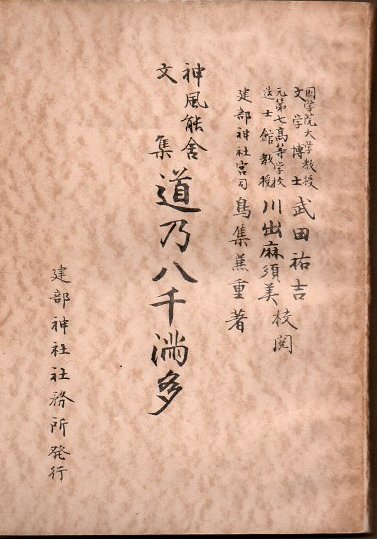 国学院大学教授
文学博士 武田祐吉
元第七高等学校
造士館教授 川出麻須美 校閲
建部神社宮司 鳥集蕉重著
神風能舎
文集
道乃八千満多
建部神社社務所発行